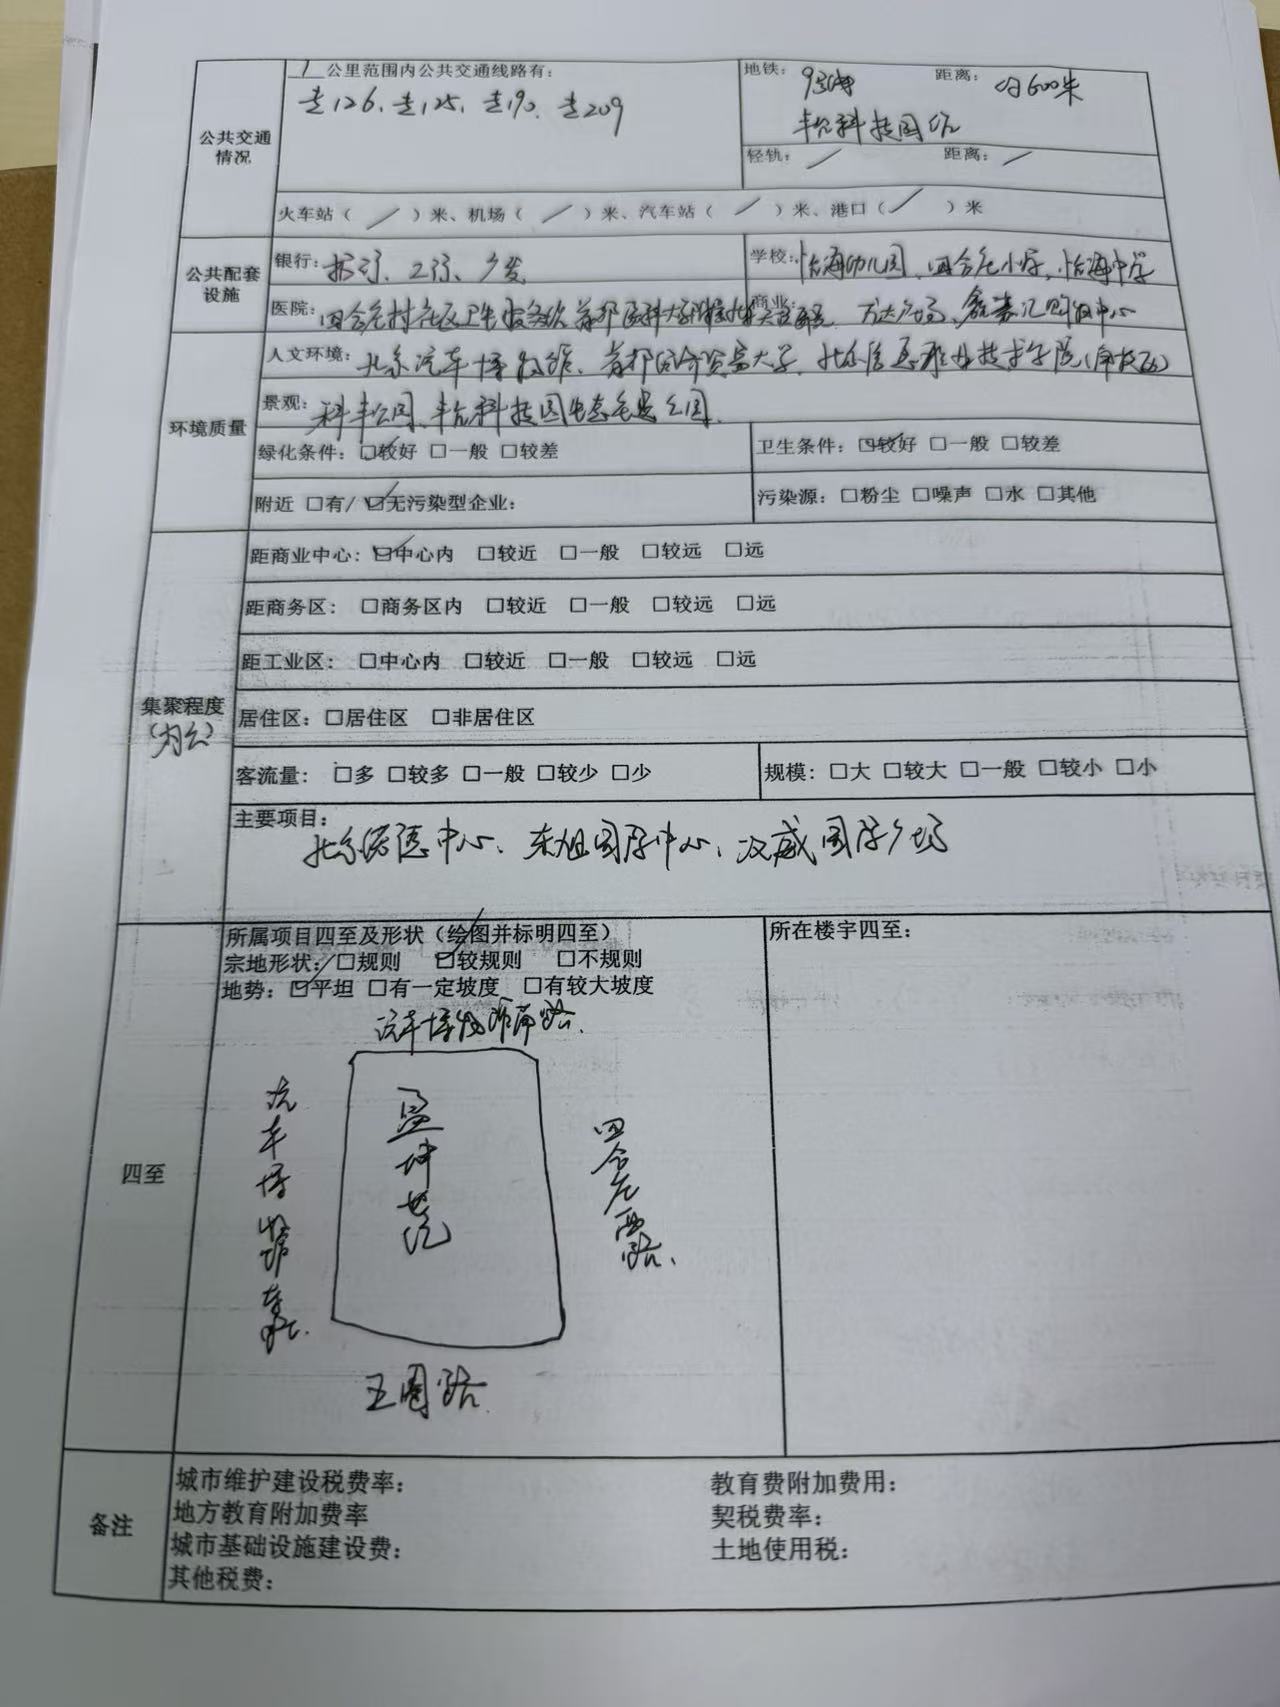 1 公里范围内公共交通线路有：
专126、专125、专190、专209
地铁： 9号线 距离： 约600米
丰台科技园站
公共交通
情况
轻轨： / 距离： /
火车站（ / ）米、机场（ / ）米、汽车站（ / ）米、港口（ / ）米
公共配套
设施
银行： 招行、工行、广发
学校： 怡海幼儿园、四合庄小学、怡海中学
医院： 四合庄村社区卫生服务站 首都医科大学附属北京天坛医院
商业： 万达广场、购物中心
环境质量
人文环境： 北京汽车博物馆、首都经济贸易大学、北京信息职业技术学院
景观： 科丰公园、丰台科技园生态主题公园
绿化条件：☑较好 □一般 □较差
卫生条件：☑较好 □一般 □较差
附近 □有/☑无污染型企业：
污染源：□粉尘 □噪声 □水 □其他
集聚程度
（办公）
距商业中心：☑中心内 □较近 □一般 □较远 □远
距商务区： □商务区内 □较近 □一般 □较远 □远
距工业区： □中心内 □较近 □一般 □较远 □远
居住区：□居住区 □非居住区
客流量： □多 □较多 □一般 □较少 □少
规模：□大 □较大 □一般 □较小 □小
主要项目：
北京诺德中心、东旭国际中心、汉威国际广场
四至
所属项目四至及形状（绘图并标明四至）
宗地形状：□规则 ☑较规则 □不规则
地势：☑平坦 □有一定坡度 □有较大坡度
所在楼宇四至：
汽车博物馆南路
汽车博物馆东路
盈坤世纪
四合庄西路
五圈路
备注
城市维护建设税费率：
教育费附加费用：
地方教育附加费率
契税费率：
城市基础设施建设费：
土地使用税：
其他税费：